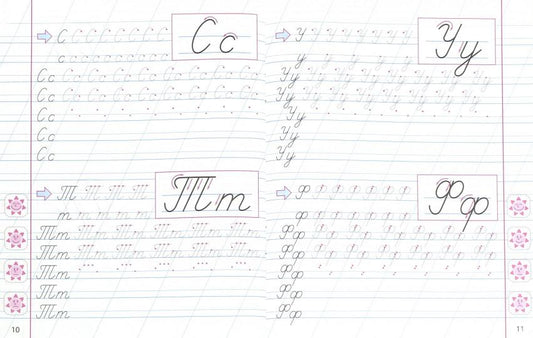 Сс
С С С С С С С С
с с с с с с с с
Сс Сс Сс Сс Сс Сс Сс Сс Сс
Сс Сс Сс Сс Сс Сс Сс Сс Сс
Сс
Сс
Сс
Тт
Т Т Т Т
т т т т т т
Тт Тт Тт Тт Тт Тт
Тт Тт Тт Тт Тт Тт
Тт
Тт
Тт
10
Уу
У У У У У У У У
у у у у
Уу Уу Уу Уу Уу Уу Уу Уу
Уу Уу Уу Уу Уу Уу Уу Уу
Уу
Уу
Уу
Фф
Ф Ф Ф Ф Ф Ф
ф ф ф ф ф ф ф
Фф Фф Фф Фф Фф Фф
Фф Фф Фф Фф Фф Фф
Фф
Фф
Фф
11